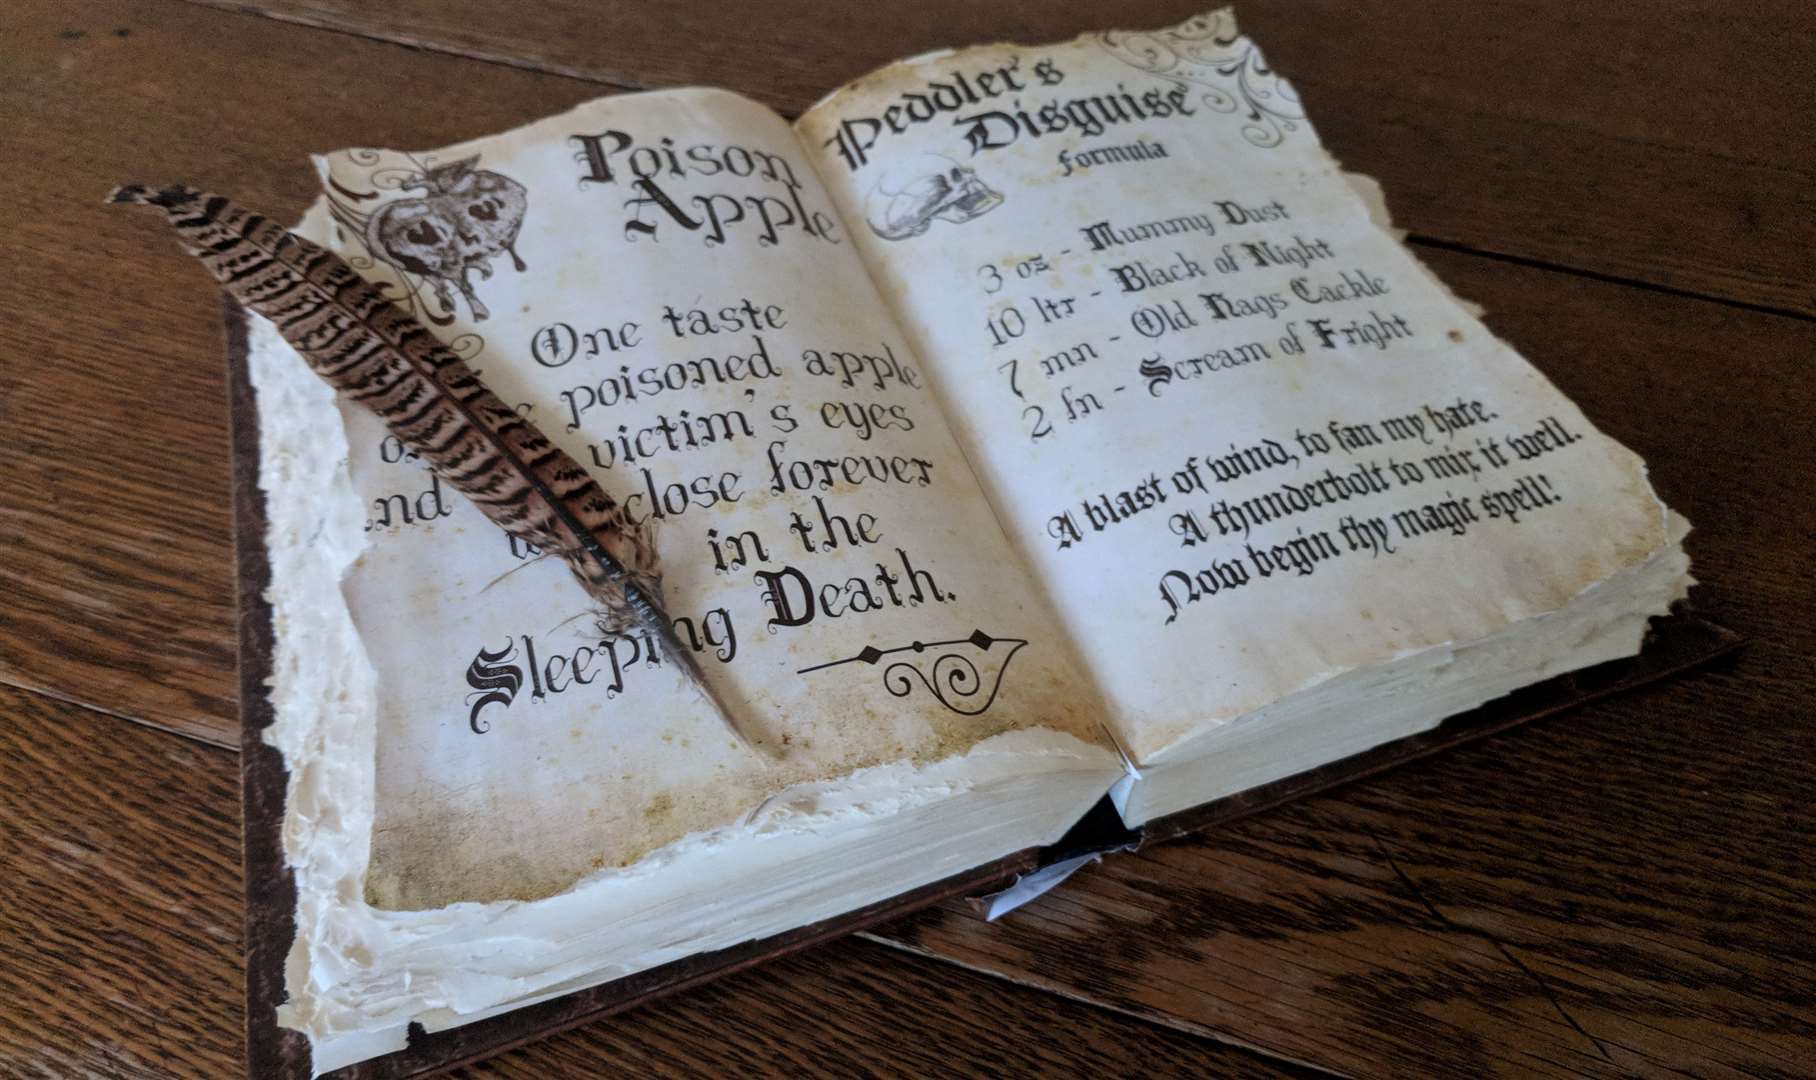 Poison
Apple
One taste
poisoned apple
victim's eyes
close forever
in the
Sleeping Death.
Peddler's
Disguise
formula
3 oz - Mummy Dust
10 ltr - Black of Night
7 mn - Old Hags Cackle
2 fn - Scream of Fright
A blast of wind, to fan my hate.
A thunderbolt to mix it well.
Now begin thy magic spell!